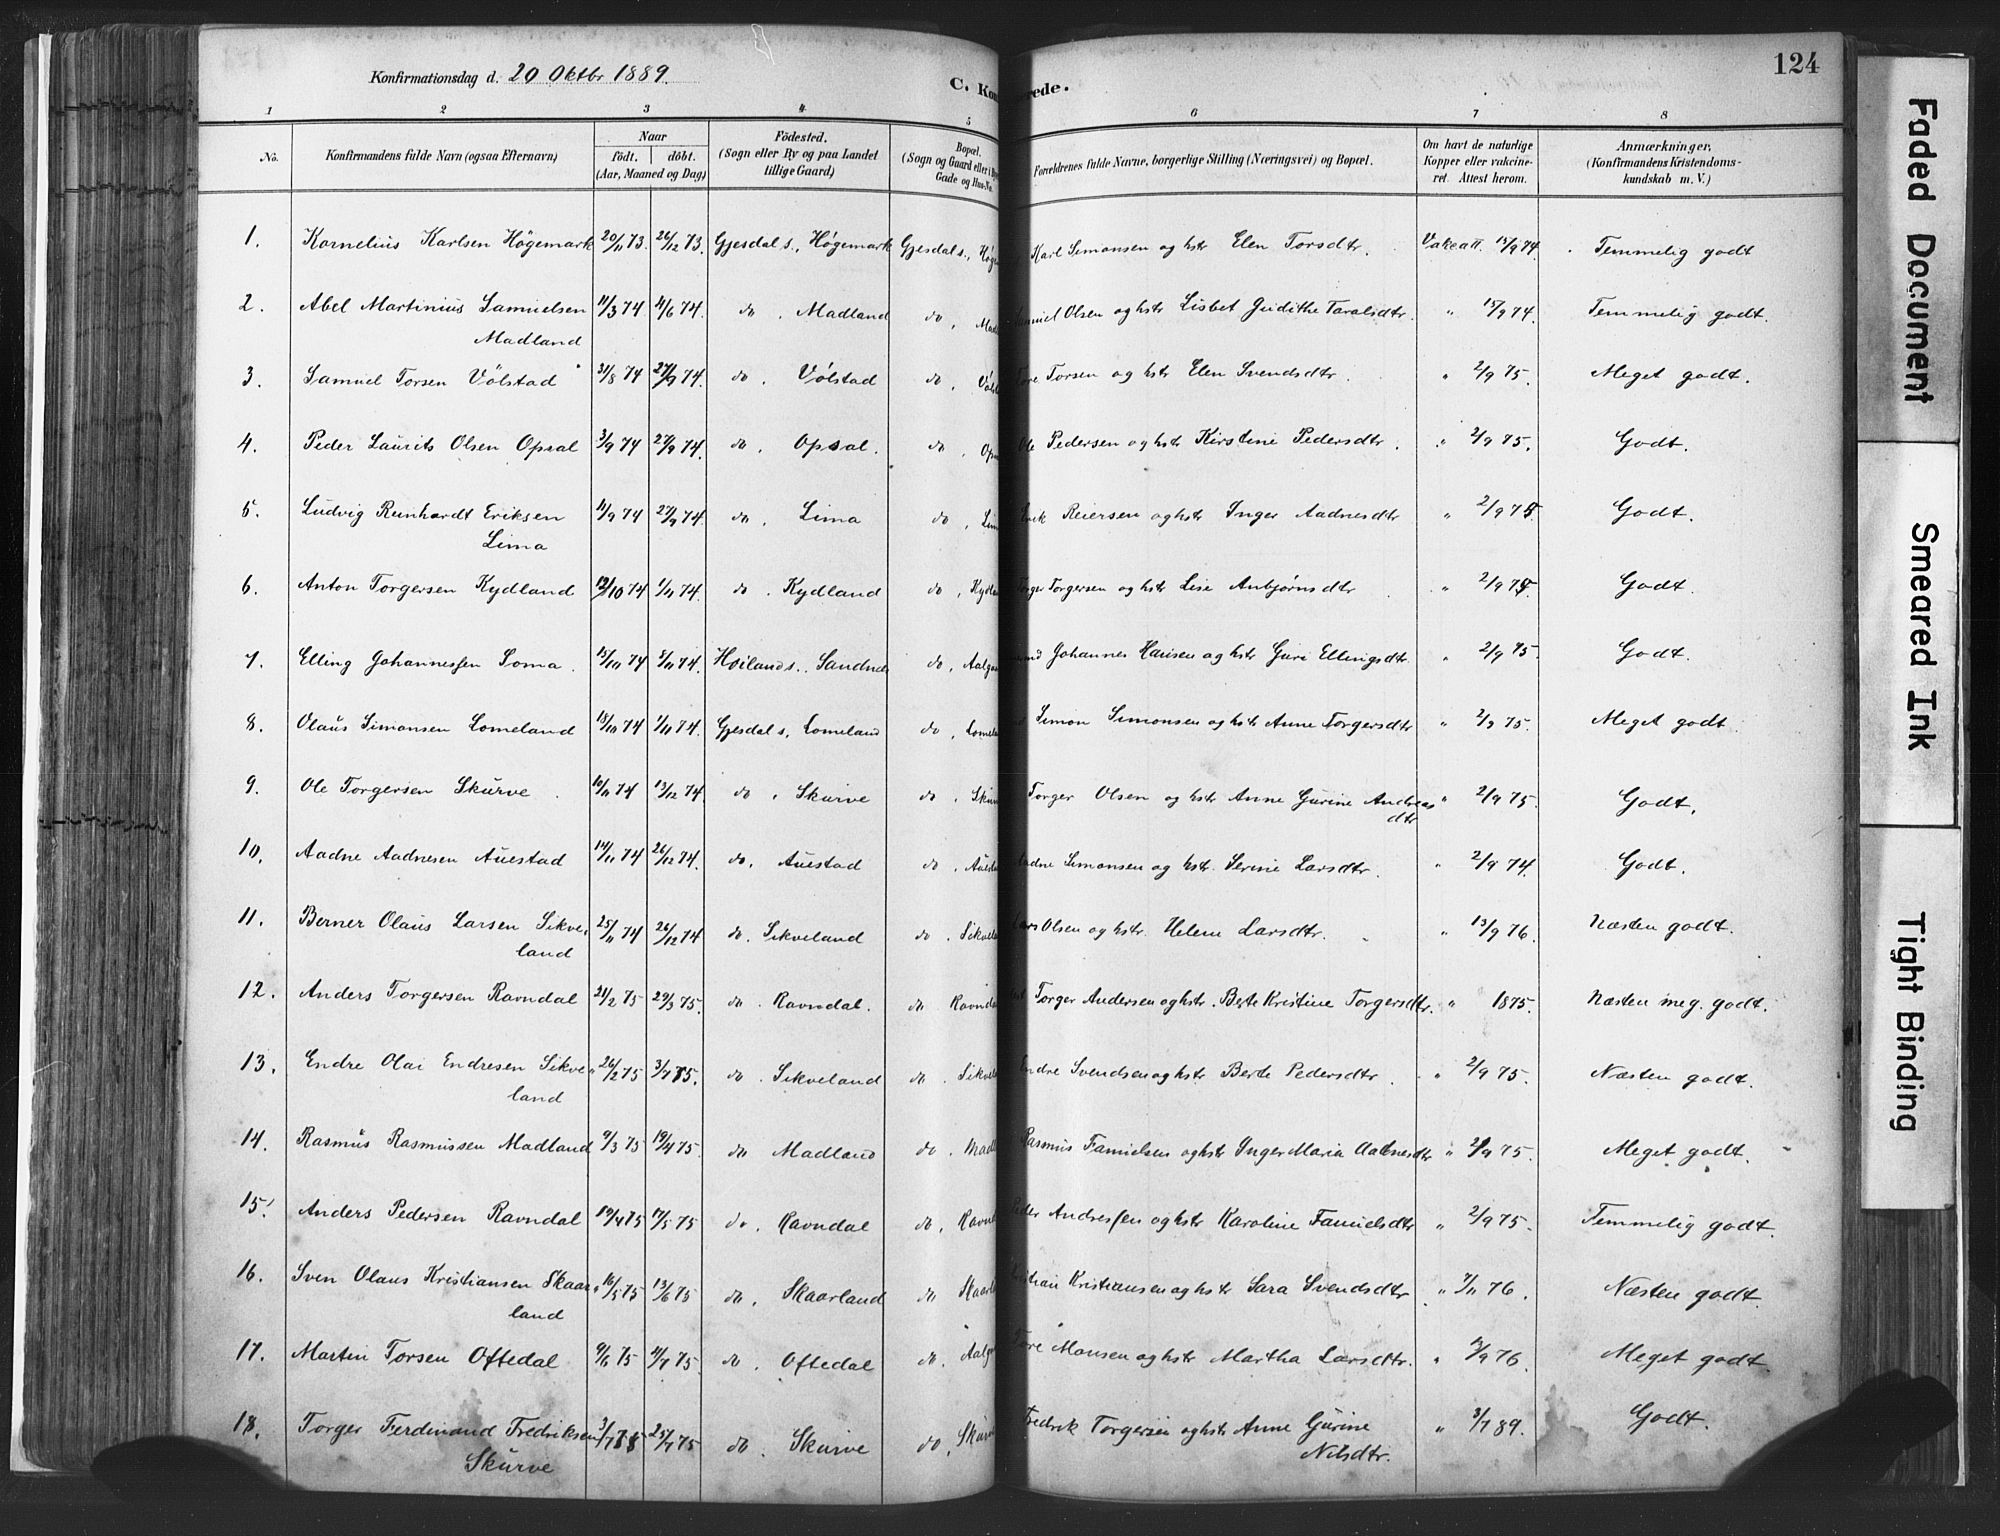 124
Konfirmationsdag d. 20 Oktbr 1889.
C. Kon rede.
1 2 3 4 5 6 7 8
No.
Konfirmandens fulde Navn (ogsaa Efternavn)
Naar
födt. döbt.
(Aar, Maaned og Dag)
Födested.
(Sogn eller By og paa Landet
tillige Gaard)
Bopæl.
(Sogn og Gaard eller i
Gade og Hus-No.
Forældrenes fulde Navne, borgerlige Stilling (Næringsvei) og Bopæl.
Om havt de naturlige
Kopper eller vakcine-
ret. Attest herom.
Anmærkninger.
(Konfirmandens Kristendoms-
kundskab m. V.)
1. Kornelius Karlsen Högemark 20/11 73. 26/12 73. Gjesdal s., Högemark Gjesdal s., Karl Simonsen og hstr Elen Torsdtr. Vakcatt. 15/9 74. Temmelig godt
2. Abel Martinius Samuelsen 11/3 74 4/6 74. do , Madland do , Olsen og hstr Lisbet Judithe Taralsdtr. " 15/9 74. Temmelig godt.
Madland
3. Samuel Torsen Völstad 31/8 74 27/9 74. do , Völstad do , Torsen og hstr Elen Svendsdtr. " 2/9 75. Meget godt.
4. Peder Laurits Olsen Opsal 3/9 74 27/9 74. do , Opsal. do , Ole Pedersen og hstr Kirstine Pedersdtr. " 2/9 75. Godt.
5. Ludvig Reinhardt Eriksen 11/9 74 27/9 74. do , Lima do , Erik Reiersen og hstr Inger Aadnesdtr " 2/9 75. Godt.
Lima
6. Anton Torgersen Kydland 12/10 74 1/11 74. do , Kydland do , Torgersen og hstr Lise Anbjørnsdtr " 2/9 75. Godt.
7. Elling Johannessen Soma. 15/10 74 5/11 74. Höilands., Sandnes do , Johannes Hansen og hstr Guri Ellingsdtr. " 2/9 75. Godt.
8. Olaus Simonsen Lomeland 15/10 74 1/11 74. Gjesdal s, Lomeland do , Simon Simonsen og hstr Anne Torgersdtr " 2/9 75. Meget godt.
9. Ole Torgersen Skurve 10/11 74 13/12 74. do , Skurve do , Torger Olsen og hstr Anne Gurine Andreas " 2/9 75. Godt.
dtr
10. Aadne Aadnesen Auestad 14/11 74 26/12 74. do , Auestad do , Aadne Simonsen og hstr. Serine Larsdtr. " 2/9 74. Godt.
11. Berner Olaus Larsen Sikve- 25/11 74 26/12 74 do , Sikveland do , Lars Olsen og hstr. Helene Larsdtr. " 13/9 76. Næsten godt.
land
12. Anders Torgersen Ravndal 21/2 75 29/3 75. do , Ravndal. do , Torger Andersen og hstr. Berte Kristine Torgersdtr. " 1875. Næsten meg. godt.
13. Endre Olai Endresen Sikve- 26/2 75 3/4 75. do , Sikveland do , Endre Svendsen og hstr Berte Pedersdtr. " 2/9 75. Næsten godt.
land
14. Rasmus Rasmussen Madland 9/3 75 19/4 75. do Madland do , Rasmus Famielsen og hstr Inger Maria Aadnesdtr " 2/9 75. Meget godt.
15. Anders Pedersen Ravndal 19/4 75 17/5 75 do , Ravndal do , Peder Andressen og hstr Karoline Famielsdtr " 2/9 75. Temmelig godt.
16. Sven Olaus Kristiansen Skaar- 16/5 75 13/6 75 do , Skaarland do Kristiansen og hstr Sara Svendsdtr " 7/11 76. Næsten godt.
land
17. Martin Torsen Oftedal 9/6 75 11/7 75 do , Oftedal do , Tore Monsen og hstr Martha Larsdtr. " /9 76. Meget godt
18. Torger Ferdinand Fredriksen 3/7 75 25/7 75 do , Skurve do , Fredrik Torgersen og hstr Anne Gurine " 3/7 89. Godt.
Skurve Nilsdtr.
Faded Document
Smeared Ink
Tight Binding